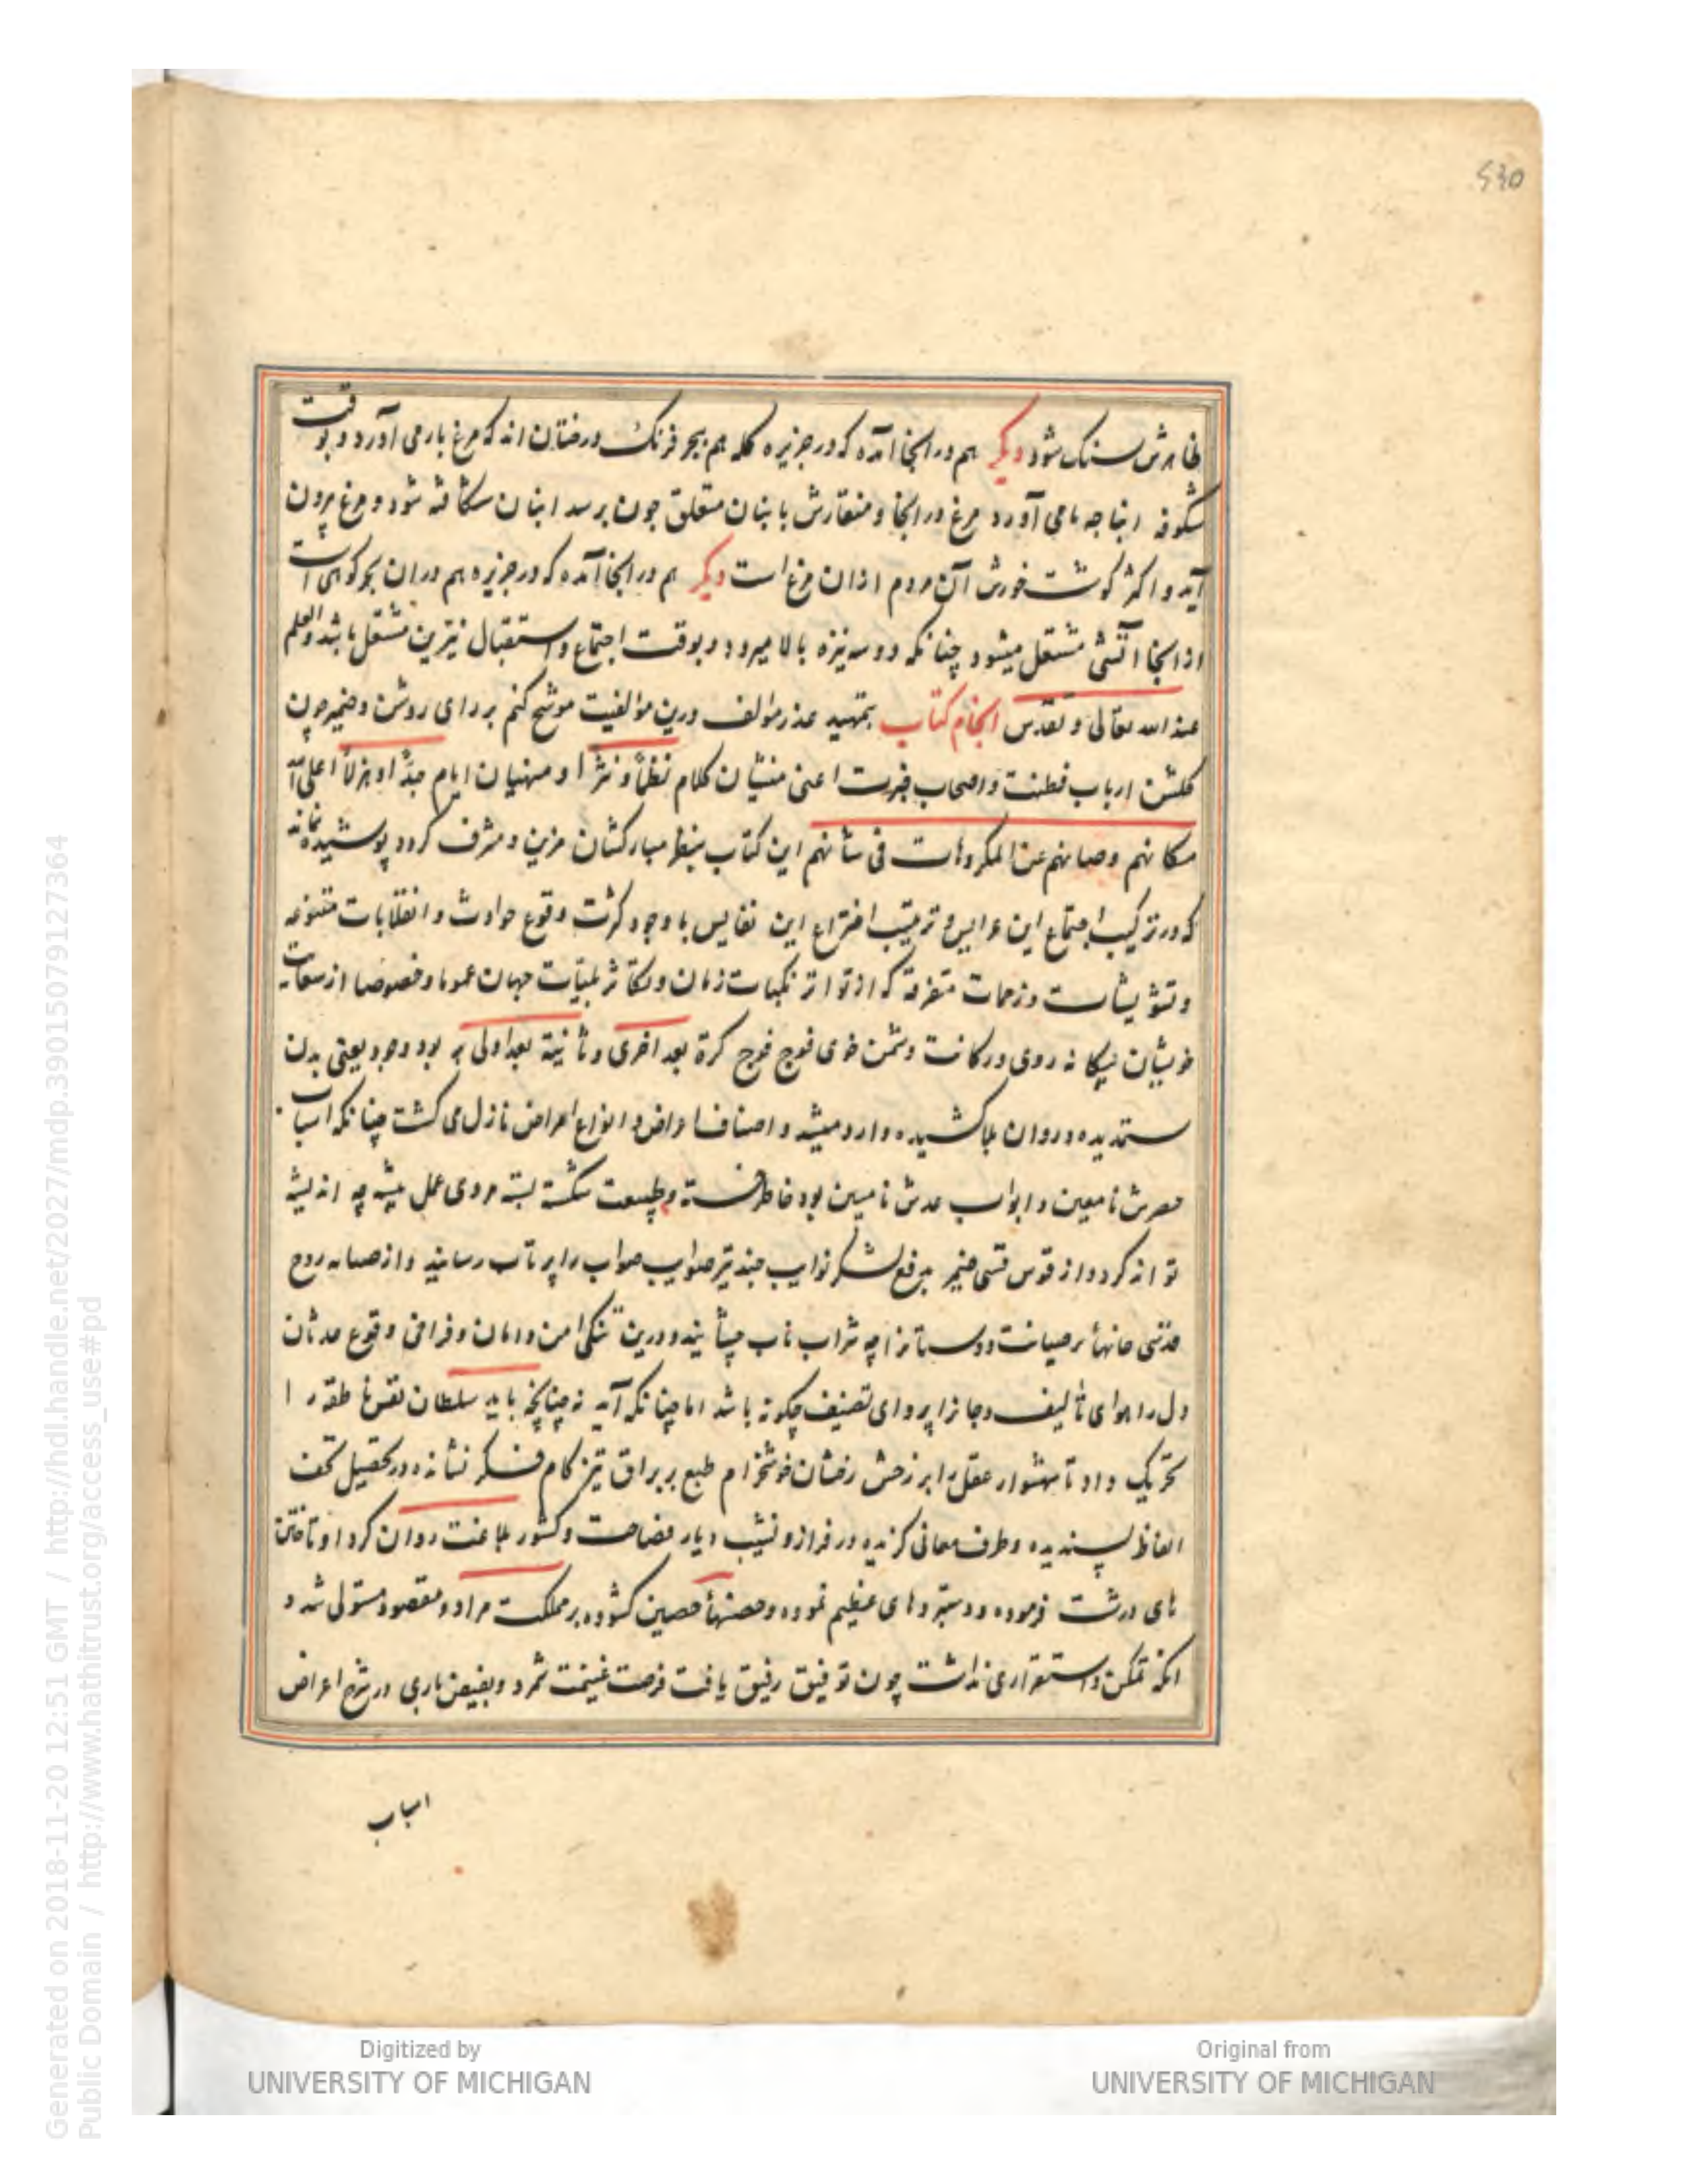 ۶۳۵
ظاهرش سنک شود دیکر هم در انجا آمده که در جزیره کله هم ببحر فرنک درختان اند که مرغ بار می آورد و بوقت
شکوفه انباجه بامی آورد مرغ در انجا و منقارش بانبان متعلق جون برسد انبان شکافته شود و مرغ بیرون
آید و اکثر کوشت خورش آن مردم ازان مرغ است دیکر هم در انجا آمده که در جزیره هم دران بحر کوهی است
از انجا آتشی مشتعل میشود چنانکه دو سه نیزه بالا میرود و بوقت اجتماع و استقبال نیرین مشتعل باشد والعلم
عند الله تعالی و تقدس انجام کتاب بتمهید عذر مؤلف درین مؤلفیت موشح کنم بر رای روشن و ضمیر چون
کلشن ارباب فطنت و اصحاب خبرت اعنی منشیان کلام نظماً و نثراً و منهیان ایام جداً او هزلاً اعلی الله
مکانهم و صانهم عن المکروهات فی شأنهم این کتاب بنظر مبارکشان مزین و مشرف کردد پوشیده نماند
که در ترکیب اجتماع این عرایس و ترتیب اختراع این نفایس با وجود کثرت وقوع حوادث و انقلابات متنوعه
و تشویشات و زحمات متفرقه که از تواتر نکبات زمان و تکاثر بلیات جهان عموما و خصوصا از سعایت
خویشان بیکانه روی در کانت دشمن خوی فوج فوج کرة بعد اخری و ثانیة بعد اولی بر بود وجود یعنی بدن
ستمدیده و روان بلا کشیده وارد میشد و اصناف اعراض و انواع امراض نازل می کشت چنانکه اسباب
حصرش نامعین و ابواب عدش نامبین بود خاطر خسته و طبیعت شکسته بسته مردی عمل پیشه چه اندیشه
تواند کرد و از قوس قسی ضمیر بدفع لشکر نوایب چند تیر صوایب صواب را پرتاب رساند و از صبابه روح
قدسی جانهاء برصیانت دوستانرا چه شراب ناب چشاند و درین تنکی امن و امان و فراخی وقوع حدثان
دل را هوای تألیف و جانرا پروای تصنیف چکونه باشد اما چنانکه آید نه چنانچه باید سلطان نفس ناطقه را
تحریک داد تا شهسوار عقل را بر رخش رخشان خوشخرام طبع بر براق تیز کام فکر نشانده در تحصیل تحف
الفاظ پسندیده و طرف معانی کزیده در فراز و نشیب دیار فصاحت و کشور بلاغت روان کرد او تاختن
های درشت فرموده و دستبردهای عظیم نموده و حصنهاء حصین کشوده بر مملکت مراد و مقصود مستولی شد و
انکه تمکن و استقراری نداشت چون توفیق رفیق یافت فرصت غنیمت شمرد و بفیض باری در شرح اعراض
اسباب
Digitized by
UNIVERSITY OF MICHIGAN
Original from
UNIVERSITY OF MICHIGAN
Generated on 2018-11-20 12:51 GMT / http://hdl.handle.net/2027/mdp.39015079127364
Public Domain / http://www.hathitrust.org/access_use#pd